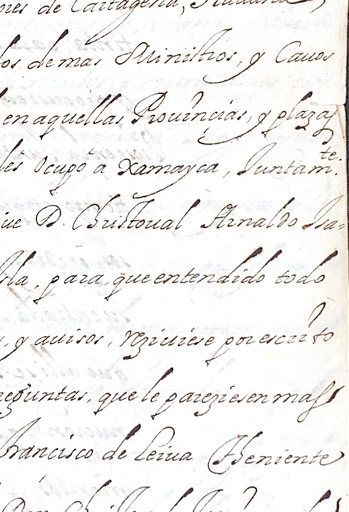 nes de Cartagena,
los demas Ministros, y Cavos
en aquellas Provinçias, y plazas
les ocupó a Xamayca, Juntamte.
ue D. Christoual Arnaldo Isa=
sla, para, que entendido todo
, y auisos, reziuiese por escrito
reguntas, que le pareziesen mas
francisco de Leiua Theniente